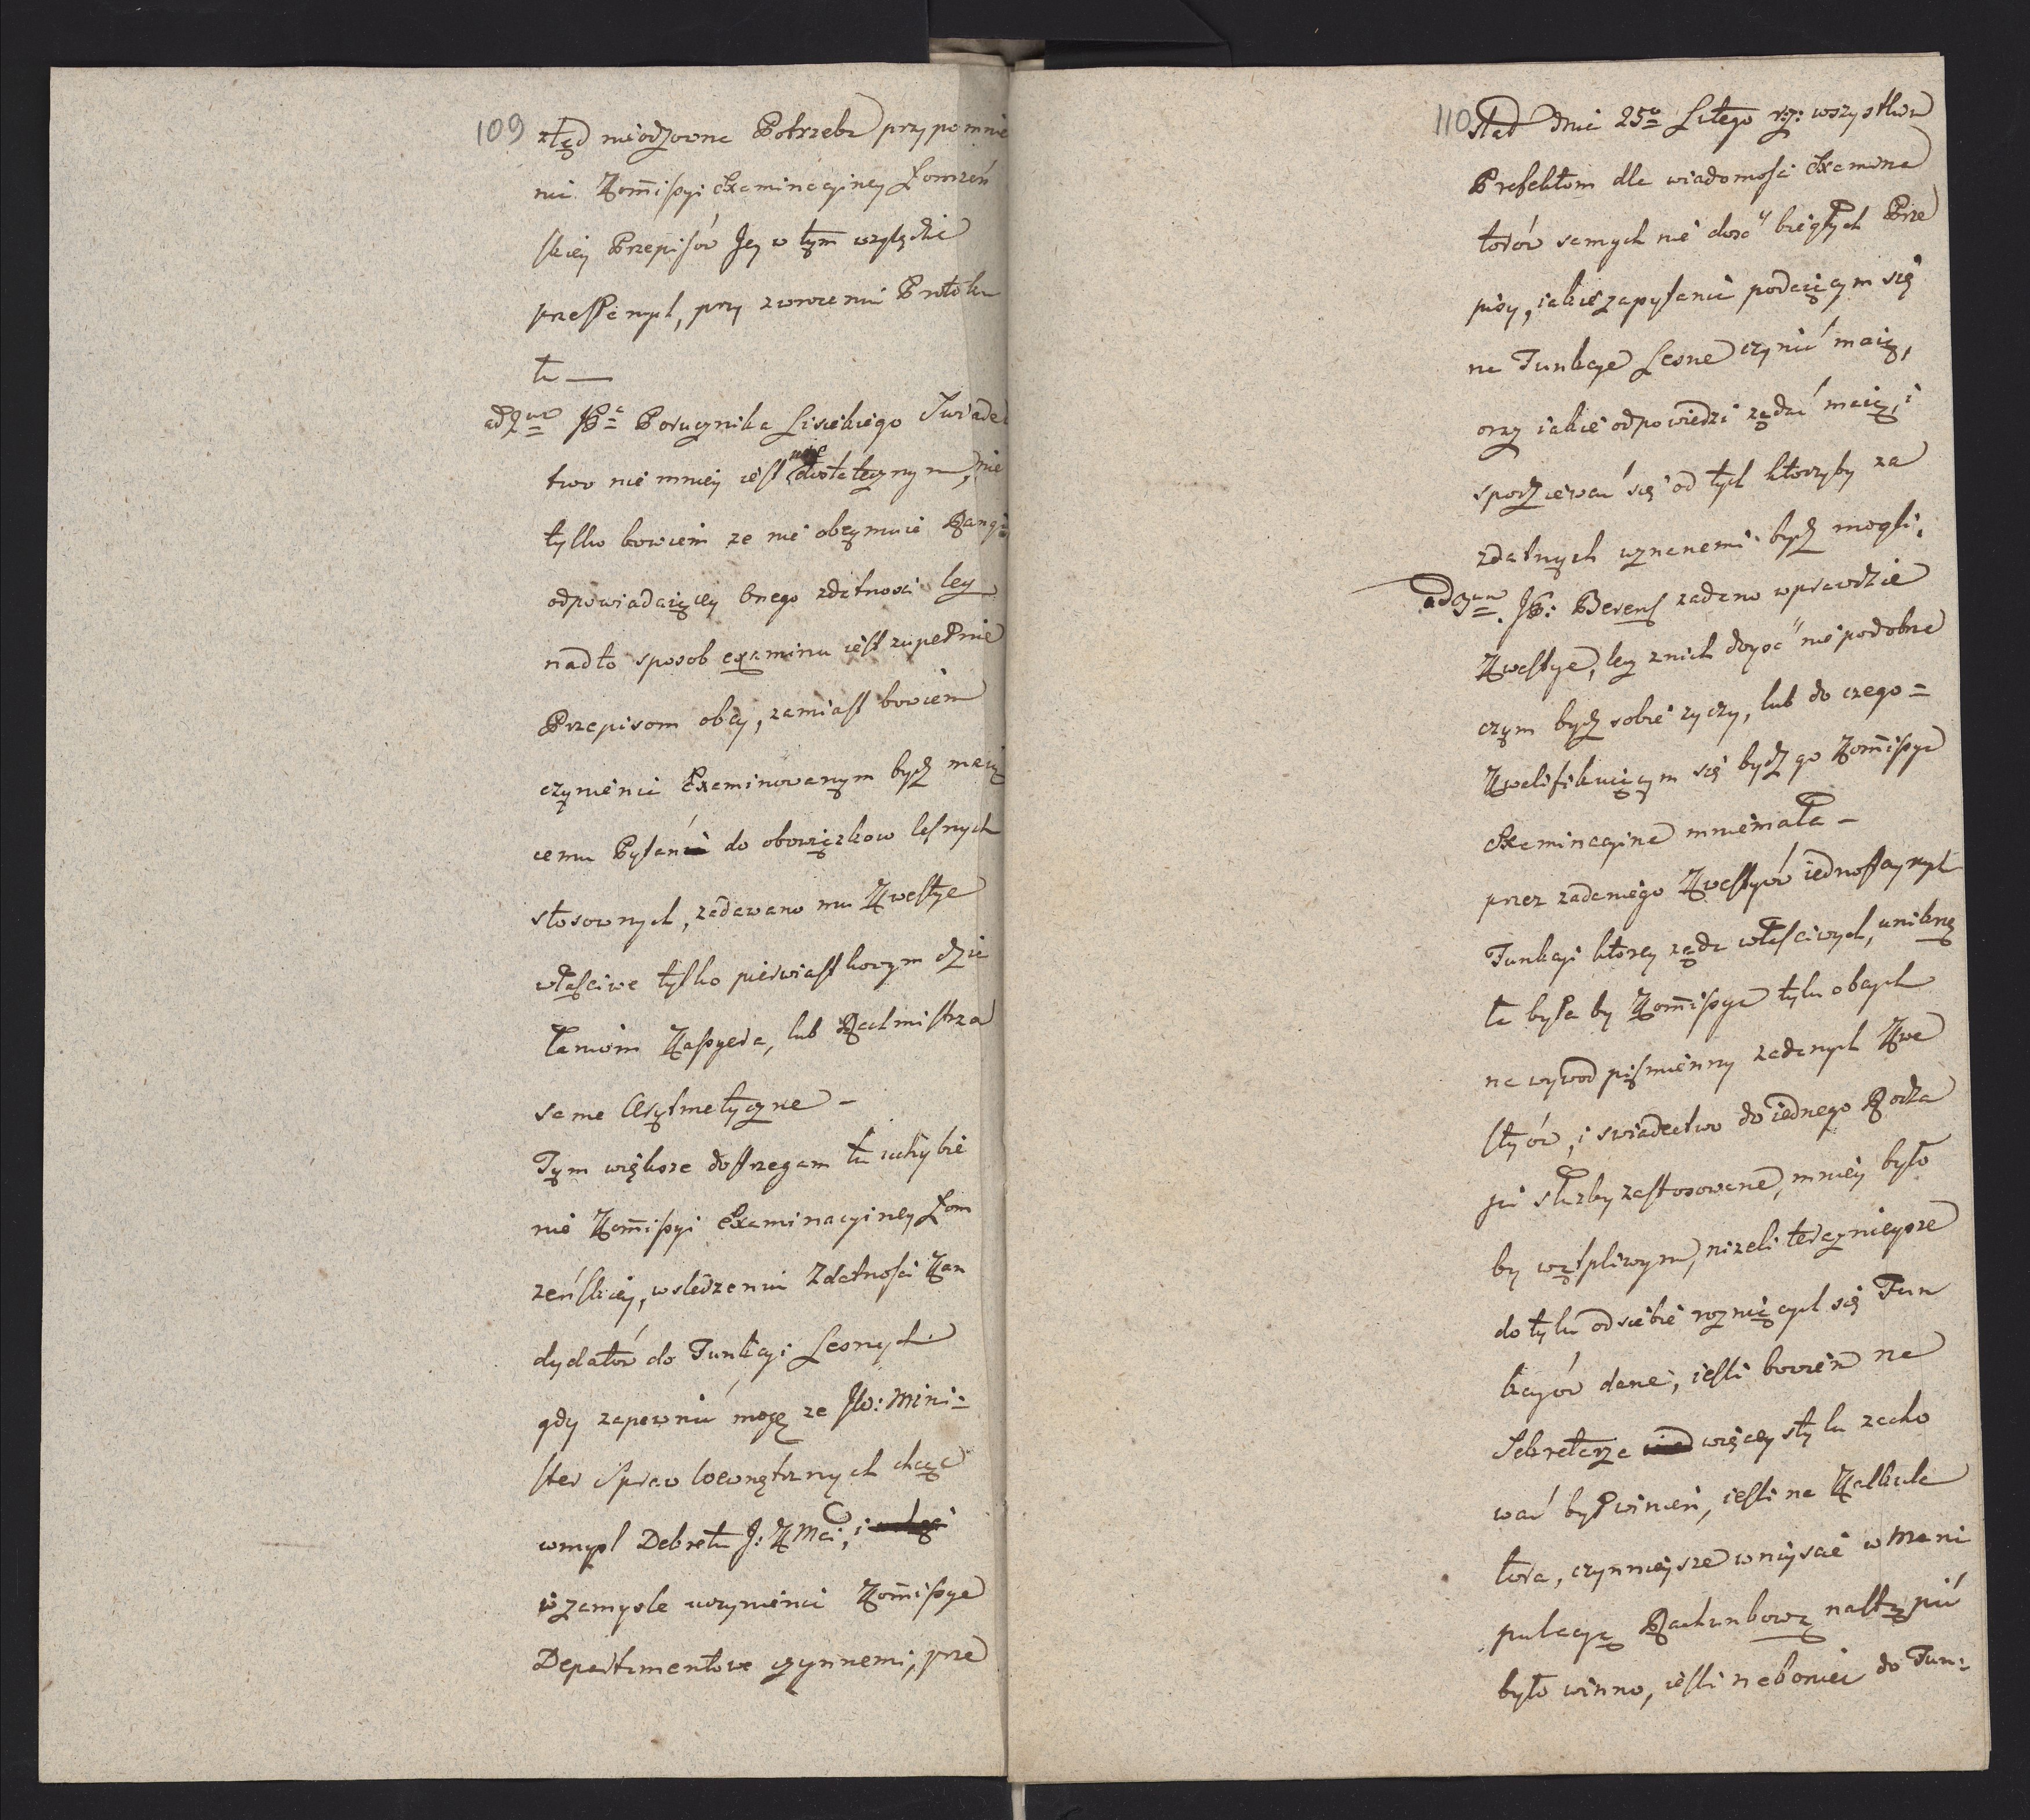 109
ztąd nieodzowna Potrzeba przypomnie
nia Kom̃issyi Examinacyiney Łomżeń
skiey Przepisów Jey w tym względzie
przesłanych, przy zwroceniu Protoku
łu —
ad 2um JPa Porucznika Lisieckiego Swiadec
two nie mniey iest dostatecznym, nie
tylko bowiem ze nie obeymuie Rangi
odpowiadaiącey onego zdatnosci lecz
nadto sposob examinu iest zupełnie
Przepisom obcy, zamiast bowiem
czynienia Examinowanym bydz maią
cemu Pytań do obowiązkow lesnych
stosownych, zadawano mu Kwestye
własciwe tylko pierwiastkowym dzia
łaniom Kassyera, lub Rachmistrza
same Arytmetyczne —
Tym większe dostrzegam tu uchybie
nie Kom̃issyi Examinacyiney Łom
żeńskiey, w sledzeniu Zdatności Kan
dydatów do Funkcyi Lesnych
gdy zapewnić mogę ze JW: Mini-
ster Spraw Wewnętrznych chcąc
w mysl Dekretu J: K Mci, i
w zamysle uczynienia Kom̃issye
Departamentowe czynnemi, prze
110
słał dnia 25o Lutego r: b: wszystkim
Prefektom dla wiadomości Examina
torów samych nie dosć biegłych Prze
pisy, iakie zapytania podaiącym się
na Funkcye Lesne czynić maią,
oraz iakie odpowiedzi żądać maią, i
spodziewać się od tych ktorzyby za
zdatnych uznanemi bydz mogli.
ad 3um. JP: Berens zadano wprawdzie
Kwestye, lecz z nich doysć nie podobna
czym bydz sobie zyczy, lub do czego =
Kwalifikuiącym się bydz go Kom̃issya
Examinacyina mniemała —
przez zadaniego Kwestyów iednostaynych
Funkcyi ktorey żąda własciwych, uniknę
ła była by Kom̃issya tylu obcych
na wywod pismienny zadanych Kwe
styów, i swiadectwo do iednego Rodza
ju służby zastosowane, mniey było
by wątpliwym, nizeli teraznieysze
do tylu od siebie rozniących się Fun
kcyów dane, iesli bowiem na
Sekretarza więcey stylu zacho
wać był winien, iesli na Kalkula
tora, czynnieysze wniyscie w Mani
pulacyą Rachunkową nastąpić
było winno, iesli nakoniec do Fun-